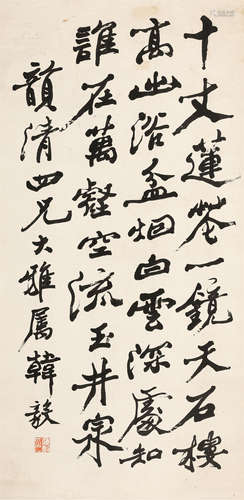 十丈蓮花一鏡天石樓
高出浴盆烟白雲深處知
誰在萬壑空流玉井泉
韻清四兄大雅屬韓敏